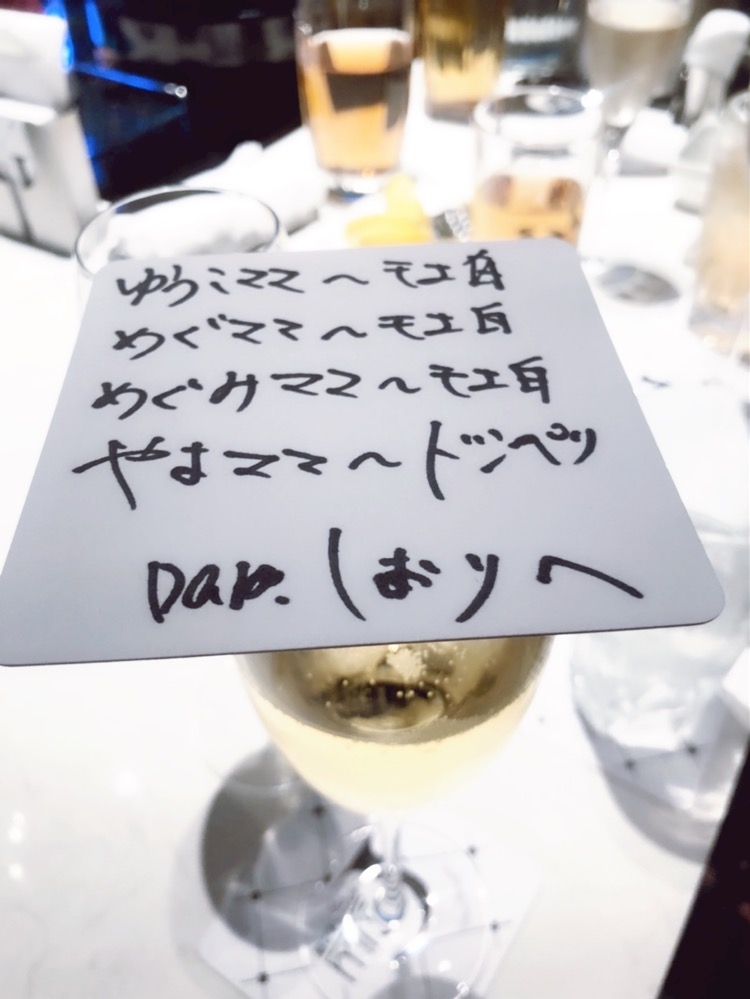 ゆうこママへモエ白
めぐママへモエ白
めぐみママへモエ白
やまママへドンペリ
Dak. しおりへ